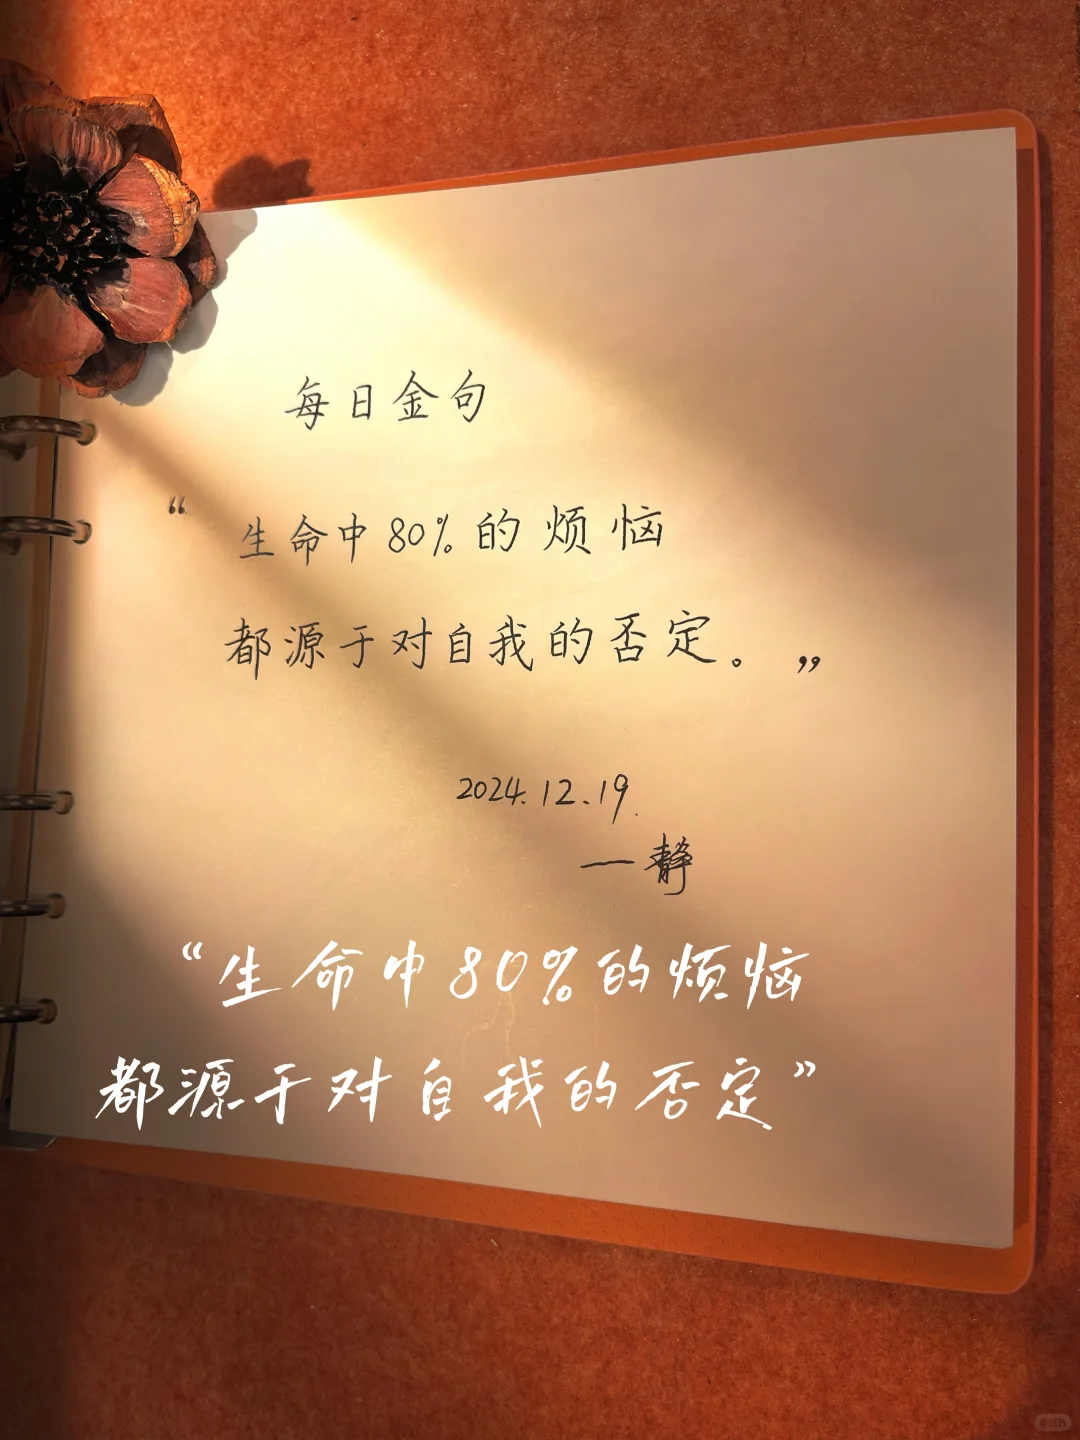 每日金句
“生命中80%的烦恼
都源于对自我的否定。”
2024.12.19.
一静
“生命中80%的烦恼
都源于对自我的否定”